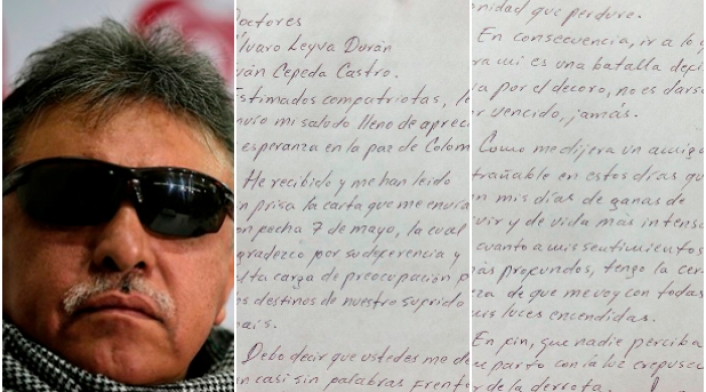 Doctores
Álvaro Leyva Durán
Iván Cepeda Castro.
Estimados compatriotas, le
envío mi saludo lleno de apreci
esperanza en la paz de Colom
He recibido y me han leido
n prisa la carta que me envía
on pecha 7 de mayo, la cual
gradezco por su deferencia y
lta carga de preocupación p
os destinos de nuestro suprido
país.
Debo decir que ustedes me d
n casi sin palabras frente
nidad que perdure.
En consecuencia, ir a lo
ra mi es una batalla depi
a por el decoro, no es darse
r vencido, jamás.
Como me dijera un amigo
trañable en estos días qu
n mis días de ganas de
vir y de vida más intensa
cuanto a mis sentimientos
ás propundos, tengo la cer
za de que me voy con todas
is luces encendidas.
En pin, que nadie perciba
e parto con la luz crepusc
r de la derrota.